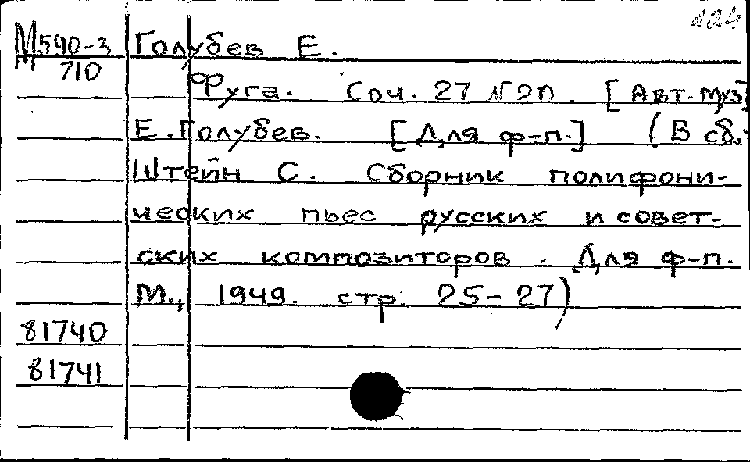 М590-3 Голубев Е.
710 Фуга. Соч. 27 №20. [Авт. муз]
Е. Голубев. [Для ф-п.] (В сб.:
Штейн С. Сборник полифони-
ческих пьес русских и совет-
ских композиторов. Для ф-п.
М., 1949. стр. 25-27)
81740
81741